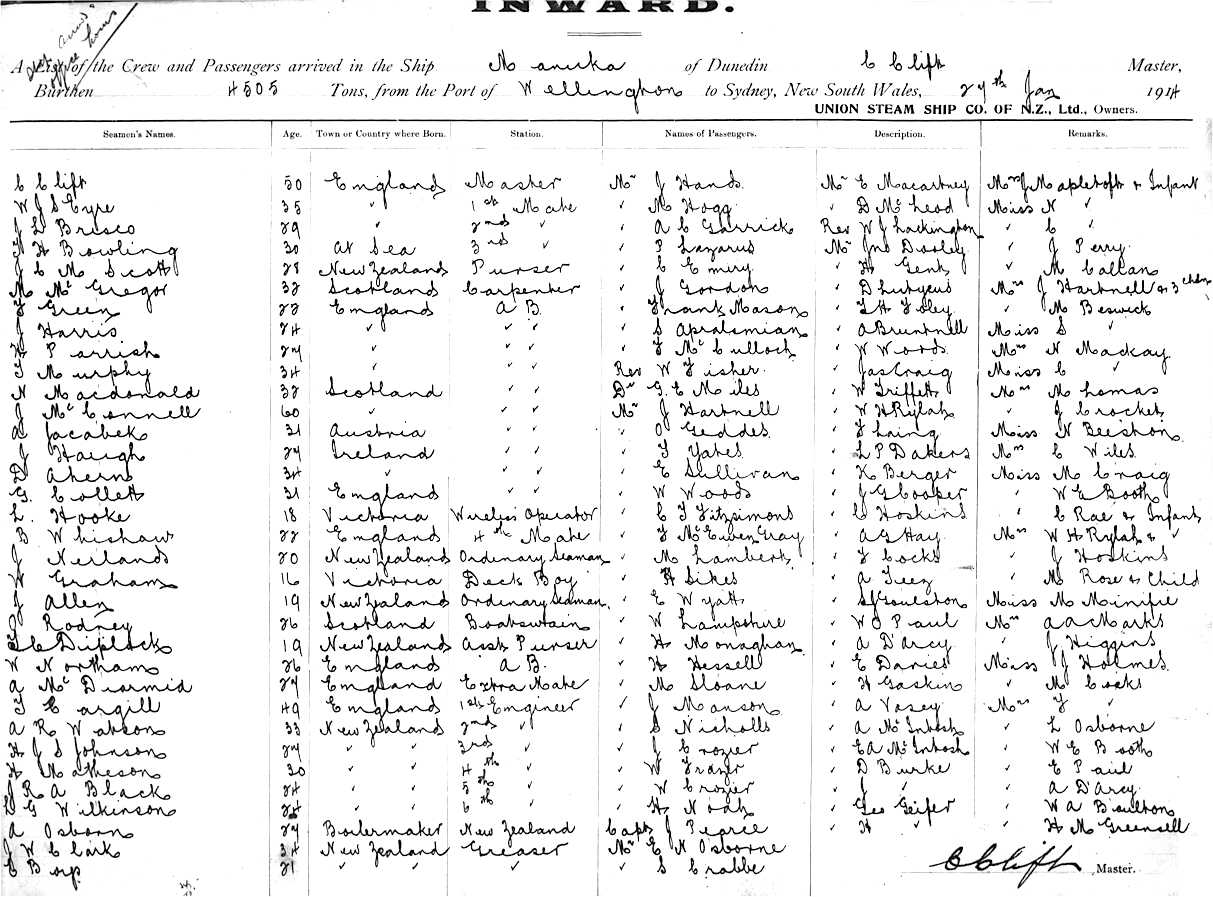 INWARD.
A List of the Crew and Passengers arrived in the Ship Manuka of Dunedin C Clift Master,
Burthen 4505 Tons, from the Port of Wellington to Sydney, New South Wales, 27th Jan 1914
UNION STEAM SHIP CO. OF N.Z., Ltd., Owners.
Seamen's Names. Age. Town or Country where Born. Station. Names of Passengers. Description. Remarks.
C Clift 50 England Master Mr J Hands Mr E Macartney Mrs J Mapletoft & Infant
W J S Eyre 35 " 1st Mate " M Hogg " D McLeod Miss N "
J L Brisco 29 " 2nd " " A C Garrick Rev W J Lackington " E "
H Bowling 30 At Sea 3rd " " P Lazarus Mr Jno Dooley " J Perry
J C M Scott 28 New Zealand Purser " C Emery " H Gent " M Callan
M McGregor 32 Scotland Carpenter " J Gordon " D Mrs J Hartnell & 3 chdn
T Green 22 England A B. " Frank Mason " T H Foley " M Beswick
J Harris 24 " " " " S " A Bruntnell Miss S "
H Parrish 27 " " " " F McCulloch " W Woods Mrs N Mackay
T Murphy 34 " " " Rev W Fisher " Jas Craig Miss C "
N Macdonald 32 Scotland " " Dr G. E Miles " W Triffett Mrs M Thomas
J McConnell 60 " " " Mr J Hartnell " W H Rylah " J Crocket
A Jacabek 31 Austria " " " O Geddes " F Laing Miss N Beeston
J Haugh 27 Ireland " " " F Yates " L P Dakers Mrs C Wiles
D Ahern 34 " " " " E Sullivan " K Berger Miss M Craig
G. Collett 31 England " " " W Woods " J G Cooper " W E Booth
L. Hooke 18 Victoria Wireless Operator " C J Fitzsimons " C Hoskins " C Rae & Infant
B Whishaw 22 England 4th Mate " F McEwen Gray " A G Hay Mrs W H Rylah & "
J Neiland 20 New Zealand Ordenary Seaman " M Lambert " F Cocks " J Hoskins
H Graham 16 Victoria Deck Boy " H Sikes " A " M Rose & Child
J Allen 19 New Zealand Ordenary Seaman " E Wyatt " S J Goulston Miss M Minifie
J Rodney 26 Scotland Boatswain " W Lampshire " W J Paul Mrs A A Marks
L C Diplock 19 New Zealand Asst Purser " H Monaghan " A D'Arcy " J Higgins
W Northam 26 England A B. " H Hessell " E Davies Miss J Holmes
A McDiarmid 27 England Extra Mate " M Sloane " H Gaskin " M Cooks
T Cargill 49 England 1st Engineer " J Manson " A Vasey Mrs F "
A R Watson 33 New Zealand 2nd " " S Nicholls " A McIntosh " L Osborne
H J S Johnson 27 " " 3rd " " J Crozier " E A McIntosh " W E Booth
H Matheson 30 " " 4th " " W Frazer " D Burke " E Paul
J R A Black 24 " " 5th " " W Crozier " J " " A D'Arcy
L G Wilkinson 25 " " 6th " " H Noah " Geo Geifer " W A Boulton
A Osborn 27 Boilermaker New Zealand Capt J Pearce " H " " H M Greensell
J W Clark 34 New Zealand Greaser Mr E N Osborne
C Borp 21 " " " " S Crabbe
C Clift Master.